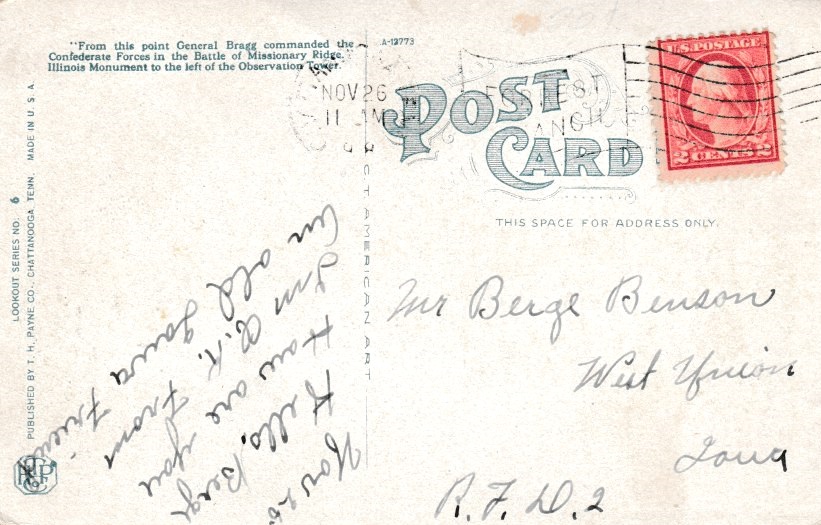 "From this point General Bragg commanded the
Confederate Forces in the Battle of Missionary Ridge.
Illinois Monument to the left of the Observation Tower.
A-12773
POST
CARD
THIS SPACE FOR ADDRESS ONLY.
U.S. POSTAGE
2 CENTS 2
NOV 26
11 AM
LOOKOUT SERIES NO. 6
PUBLISHED BY T. H. PAYNE CO., CHATTANOOGA TENN. MADE IN U. S. A.
CT AMERICAN ART
Nov 25.
Hello, Berge
How are you
I'm O.K. From
an old Iowa Friend
Mr Berge Benson
West Union
Iowa
R. F. D. 2